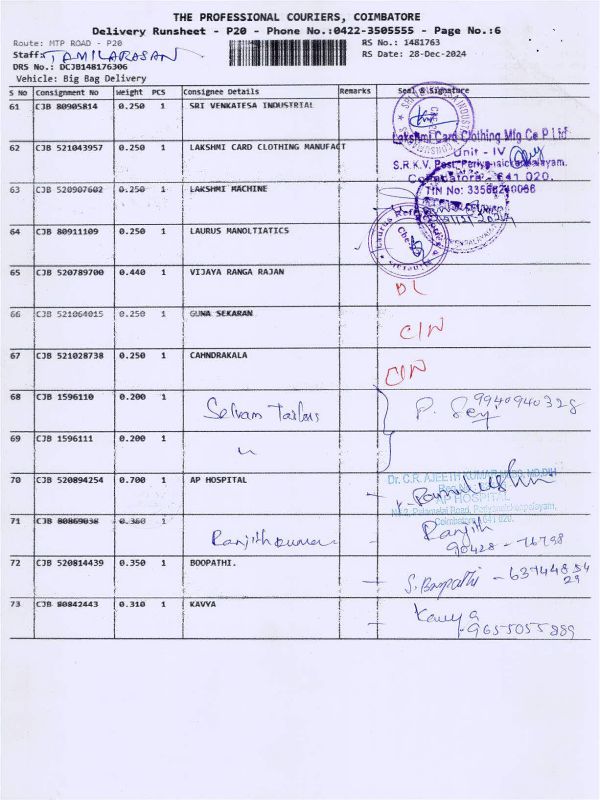 THE PROFESSIONAL COURIERS, COIMBATORE
Delivery Runsheet - P20 - Phone No.:0422-3505555 - Page No.:6
Route: MTP ROAD - P20
RS No.: 1481763
Staff: TAMILARASAN
RS Date: 28-Dec-2024
DRS No.: DCJB148176306
Vehicle: Big Bag Delivery
S No Consignment No Weight PCS Consignee Details Remarks Seal & Signature
61 CJB 80905814 0.250 1 SRI VENKATESA INDUSTRIAL
Lakshmi Card Clothing Mfg Co P Ltd
62 CJB 521043957 0.250 1 LAKSHMI CARD CLOTHING MANUFACT
Unit - IV
S.R.K.V. Post, Periyanaickenpalayam,
Coimbatore - 641 020.
63 CJB 520907602 0.250 1 LAKSHMI MACHINE
64 CJB 80911109 0.250 1 LAURUS MANOLTIATICS
65 CJB 520789700 0.440 1 VIJAYA RANGA RAJAN
DL
66 CJB 521064015 0.250 1 GUNA SEKARAN
C/N
67 CJB 521028738 0.250 1 CAHNDRAKALA
C/N
68 CJB 1596110 0.200 1 Selvam Tailors
9940940328
69 CJB 1596111 0.200 1 "
70 CJB 520894254 0.700 1 AP HOSPITAL
AP HOSPITAL
Coimbatore - 641 020.
71 CJB 80869038 0.360 1 Ranjithkumar
Ranjith
90428 - 76798
72 CJB 520814439 0.350 1 BOOPATHI.
S. Boopathi - 63744854
29
73 CJB 80842443 0.310 1 KAVYA
Kavya
9655055889